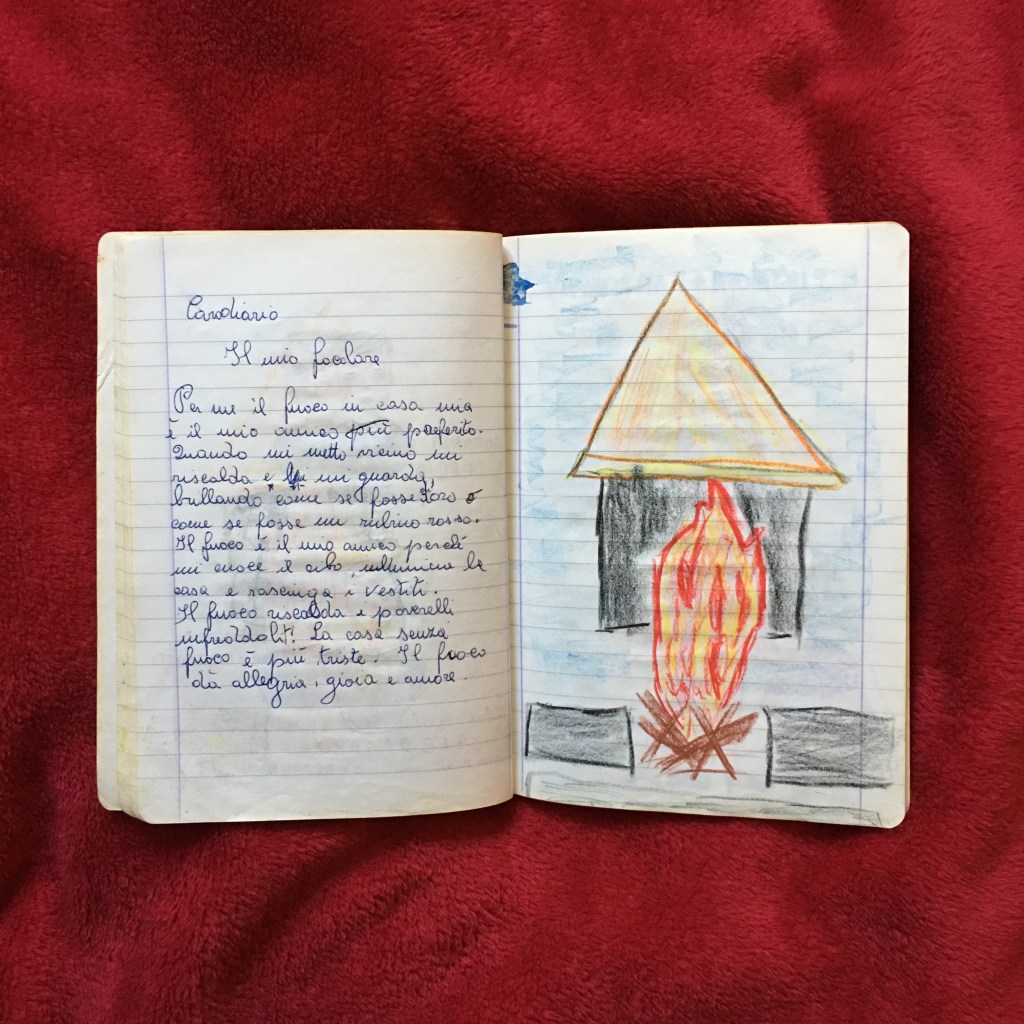 Caro diario
Il mio focolare
Per me il fuoco in casa mia
è il mio amico più preferito.
Quando mi metto vicino mi
riscalda e mi guarda,
brillando come se fosse d'oro o
come se fosse un rubino rosso.
Il fuoco è il mio amico perché
mi cuoce il cibo, illumina la
casa e rasciuga i vestiti.
Il fuoco riscalda i poverelli
infreddoliti. La casa senza
fuoco è più triste. Il fuoco
dà allegria, gioia e amore.